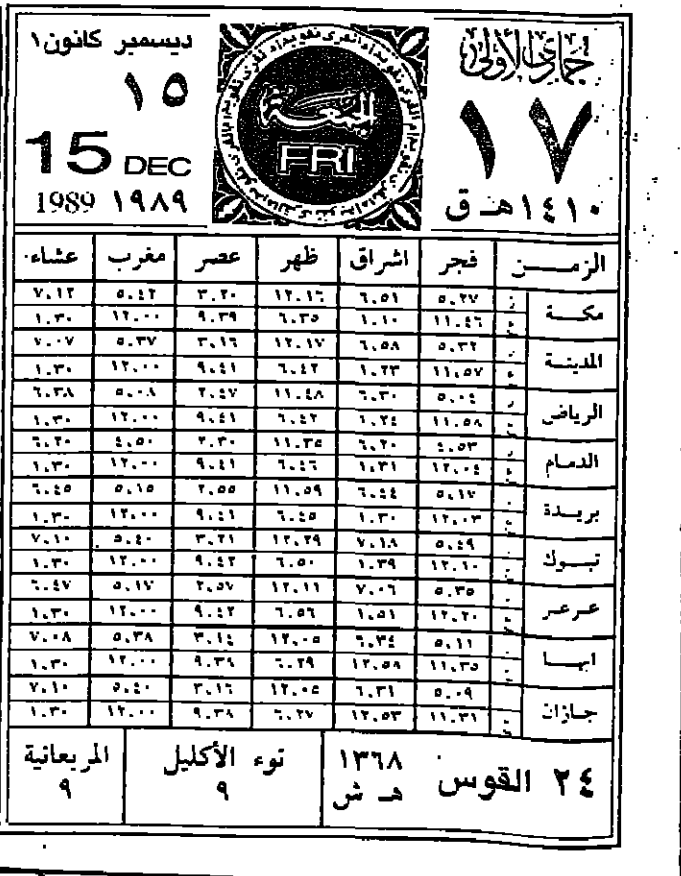 جمادى الأولى
١٧
١٤١٠ هـ ق
الجمعة
FRI
ديسمبر كانون١
١٥
15 DEC
1989 ١٩٨٩
الزمـــن فجر اشراق ظهر عصر مغرب عشاء
مكـــة ز ٥.٢٧ ٦.٥١ ١٢.١٦ ٣.٢٠ ٥.٤٢ ٧.١٢
١١.٤٦ ١.١٠ ٦.٣٥ ٩.٣٩ ١٢.٠٠ ١.٣٠
المدينـــة ٥.٣٢ ٦.٥٨ ١٢.١٧ ٣.١٦ ٥.٣٧ ٧.٠٧
١١.٥٧ ١.٢٣ ٦.٤٢ ٩.٤١ ١٢.٠٠ ١.٣٠
الرياض ٥.٠٤ ٦.٣٠ ١١.٤٨ ٢.٤٧ ٥.٠٨ ٦.٣٨
١١.٥٨ ١.٢٤ ٦.٤٢ ٩.٤١ ١٢.٠٠ ١.٣٠
الدمـام ٤.٥٣ ٦.٢٠ ١١.٣٥ ٢.٣٠ ٤.٥٠ ٦.٢٠
١٢.٠٤ ١.٣١ ٦.٤٦ ٩.٤١ ١٢.٠٠ ١.٣٠
بريـدة ٥.١٧ ٦.٤٤ ١١.٥٩ ٢.٥٥ ٥.١٥ ٦.٤٥
١٢.٠٣ ١.٣٠ ٦.٤٥ ٩.٤١ ١٢.٠٠ ١.٣٠
تبـــوك ٥.٤٩ ٧.١٨ ١٢.٢٩ ٣.٢١ ٥.٤٠ ٧.١٠
١٢.١٠ ١.٣٩ ٦.٥٠ ٩.٤٢ ١٢.٠٠ ١.٣٠
عـرعـر ٥.٣٥ ٧.٠٦ ١٢.١١ ٢.٥٧ ٥.١٧ ٦.٤٧
١٢.٢٠ ١.٥١ ٦.٥٦ ٩.٤٢ ١٢.٠٠ ١.٣٠
ابهـــا ٥.١١ ٦.٣٤ ١٢.٠٥ ٣.١٤ ٥.٣٨ ٧.٠٨
١١.٣٥ ١٢.٥٨ ٦.٢٩ ٩.٣٩ ١٢.٠٠ ١.٣٠
جـازان ٥.٠٩ ٦.٣١ ١٢.٠٥ ٣.١٦ ٥.٤٠ ٧.١٠
١١.٣١ ١٢.٥٣ ٦.٢٧ ٩.٣٨ ١٢.٠٠ ١.٣٠
٢٤ القوس
١٣٦٨
هـ ش
نوء الأكليل
٩
المربعانية
٩